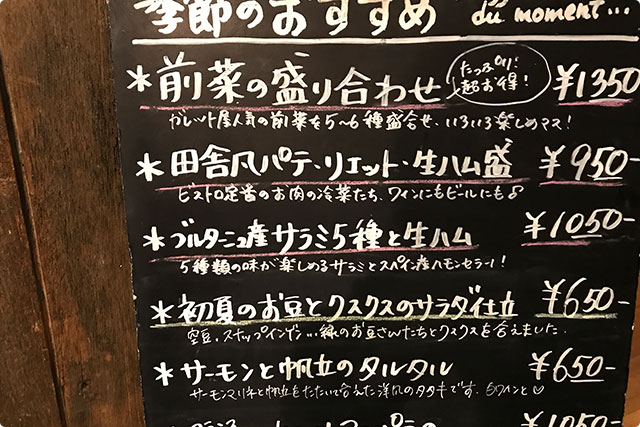 季節のおすすめ du moment...
*前菜の盛り合わせ たっぷり! 超お得! ¥1350
ガレット屋人気の前菜を5〜6種盛合せ、いろいろ楽しめマス!
*田舎風パテ・リエット・生ハム盛 ¥950-
ビストロ定番のお肉の冷菜たち、ワインにもビールにも♪
*ブルターニュ産サラミ5種と生ハム ¥1050-
5種類の味が楽しめるサラミとスペイン産ハモンセラーノ!
*初夏のお豆とクスクスのサラダ仕立 ¥650-
空豆、スナップインゲン...緑のお豆さんたちとクスクスを合えました.
*サーモンと帆立のタルタル ¥650-
サーモンマリネと帆立をたたいて合えた洋風のタタキです、白ワインと♡
¥1050-